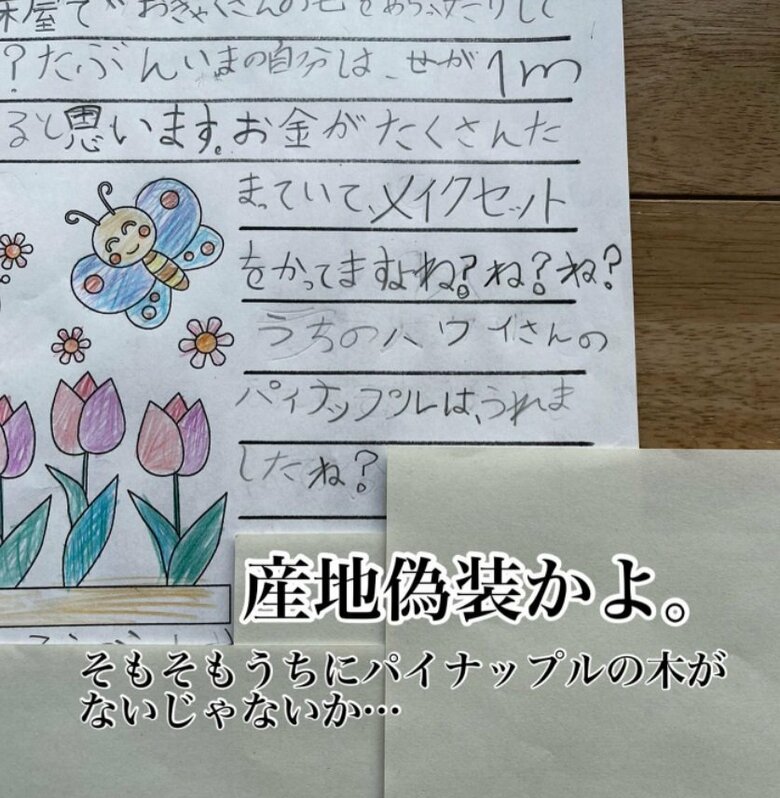 床屋で おきゃくさんの毛をあらったりして
?たぶんいまの自分は、せが1m
ると思います。お金がたくさんた
まっていて、メイクセット
をかってますよね?ね?ね?
うちのハワイさんの
パイナップルは、うれま
したね?
産地偽装かよ。
そもそもうちにパイナップルの木が
ないじゃないか…